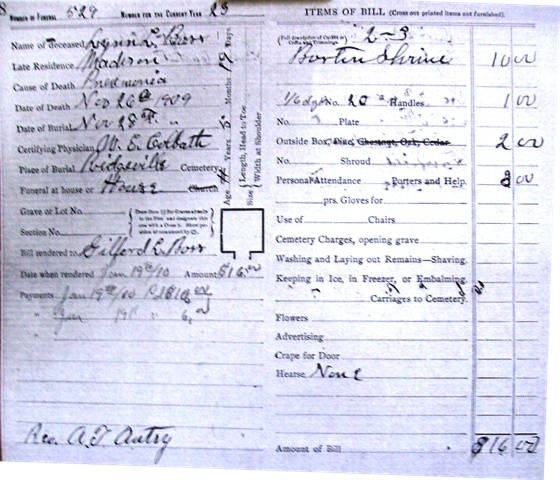 NUMBER OF FUNERAL 529 NUMBER FOR THE CURRENT YEAR 23
Name of deceased Lynn L. Boss
Late Residence Madison
Cause of Death Pneumonia
Date of Death Nov 26th 1909
Date of Burial Nov 28th "
Certifying Physician W. E. Colbath
Place of Burial Ridgeville Cemetery
Funeral at house or House Church
Age Years Months Days
Size { Length, Head to Toe
Width at Shoulder
Grave or Lot No.
Section No.
Bill rendered to Gilford L. Boss
Date when rendered Jan 19th/10 Amount $16.00
Payments Jan 19th/10
" Jan
Rev. A. T. Autry
ITEMS OF BILL (Cross out printed items not furnished).
2-3
Burtin Shrine 10 00
1/6 dz No. 20 Handles 1 00
No. Plate
Outside Box, Pine, Chestnut, Oak, Cedar 2 00
No. Shroud
Personal Attendance Porters and Help. 3 00
prs. Gloves for
Use of Chairs
Cemetery Charges, opening grave
Washing and Laying out Remains—Shaving.
Keeping in Ice, in Freezer, or Embalming.
Carriages to Cemetery.
Flowers
Advertising
Crape for Door
Hearse None
Amount of Bill $16 00